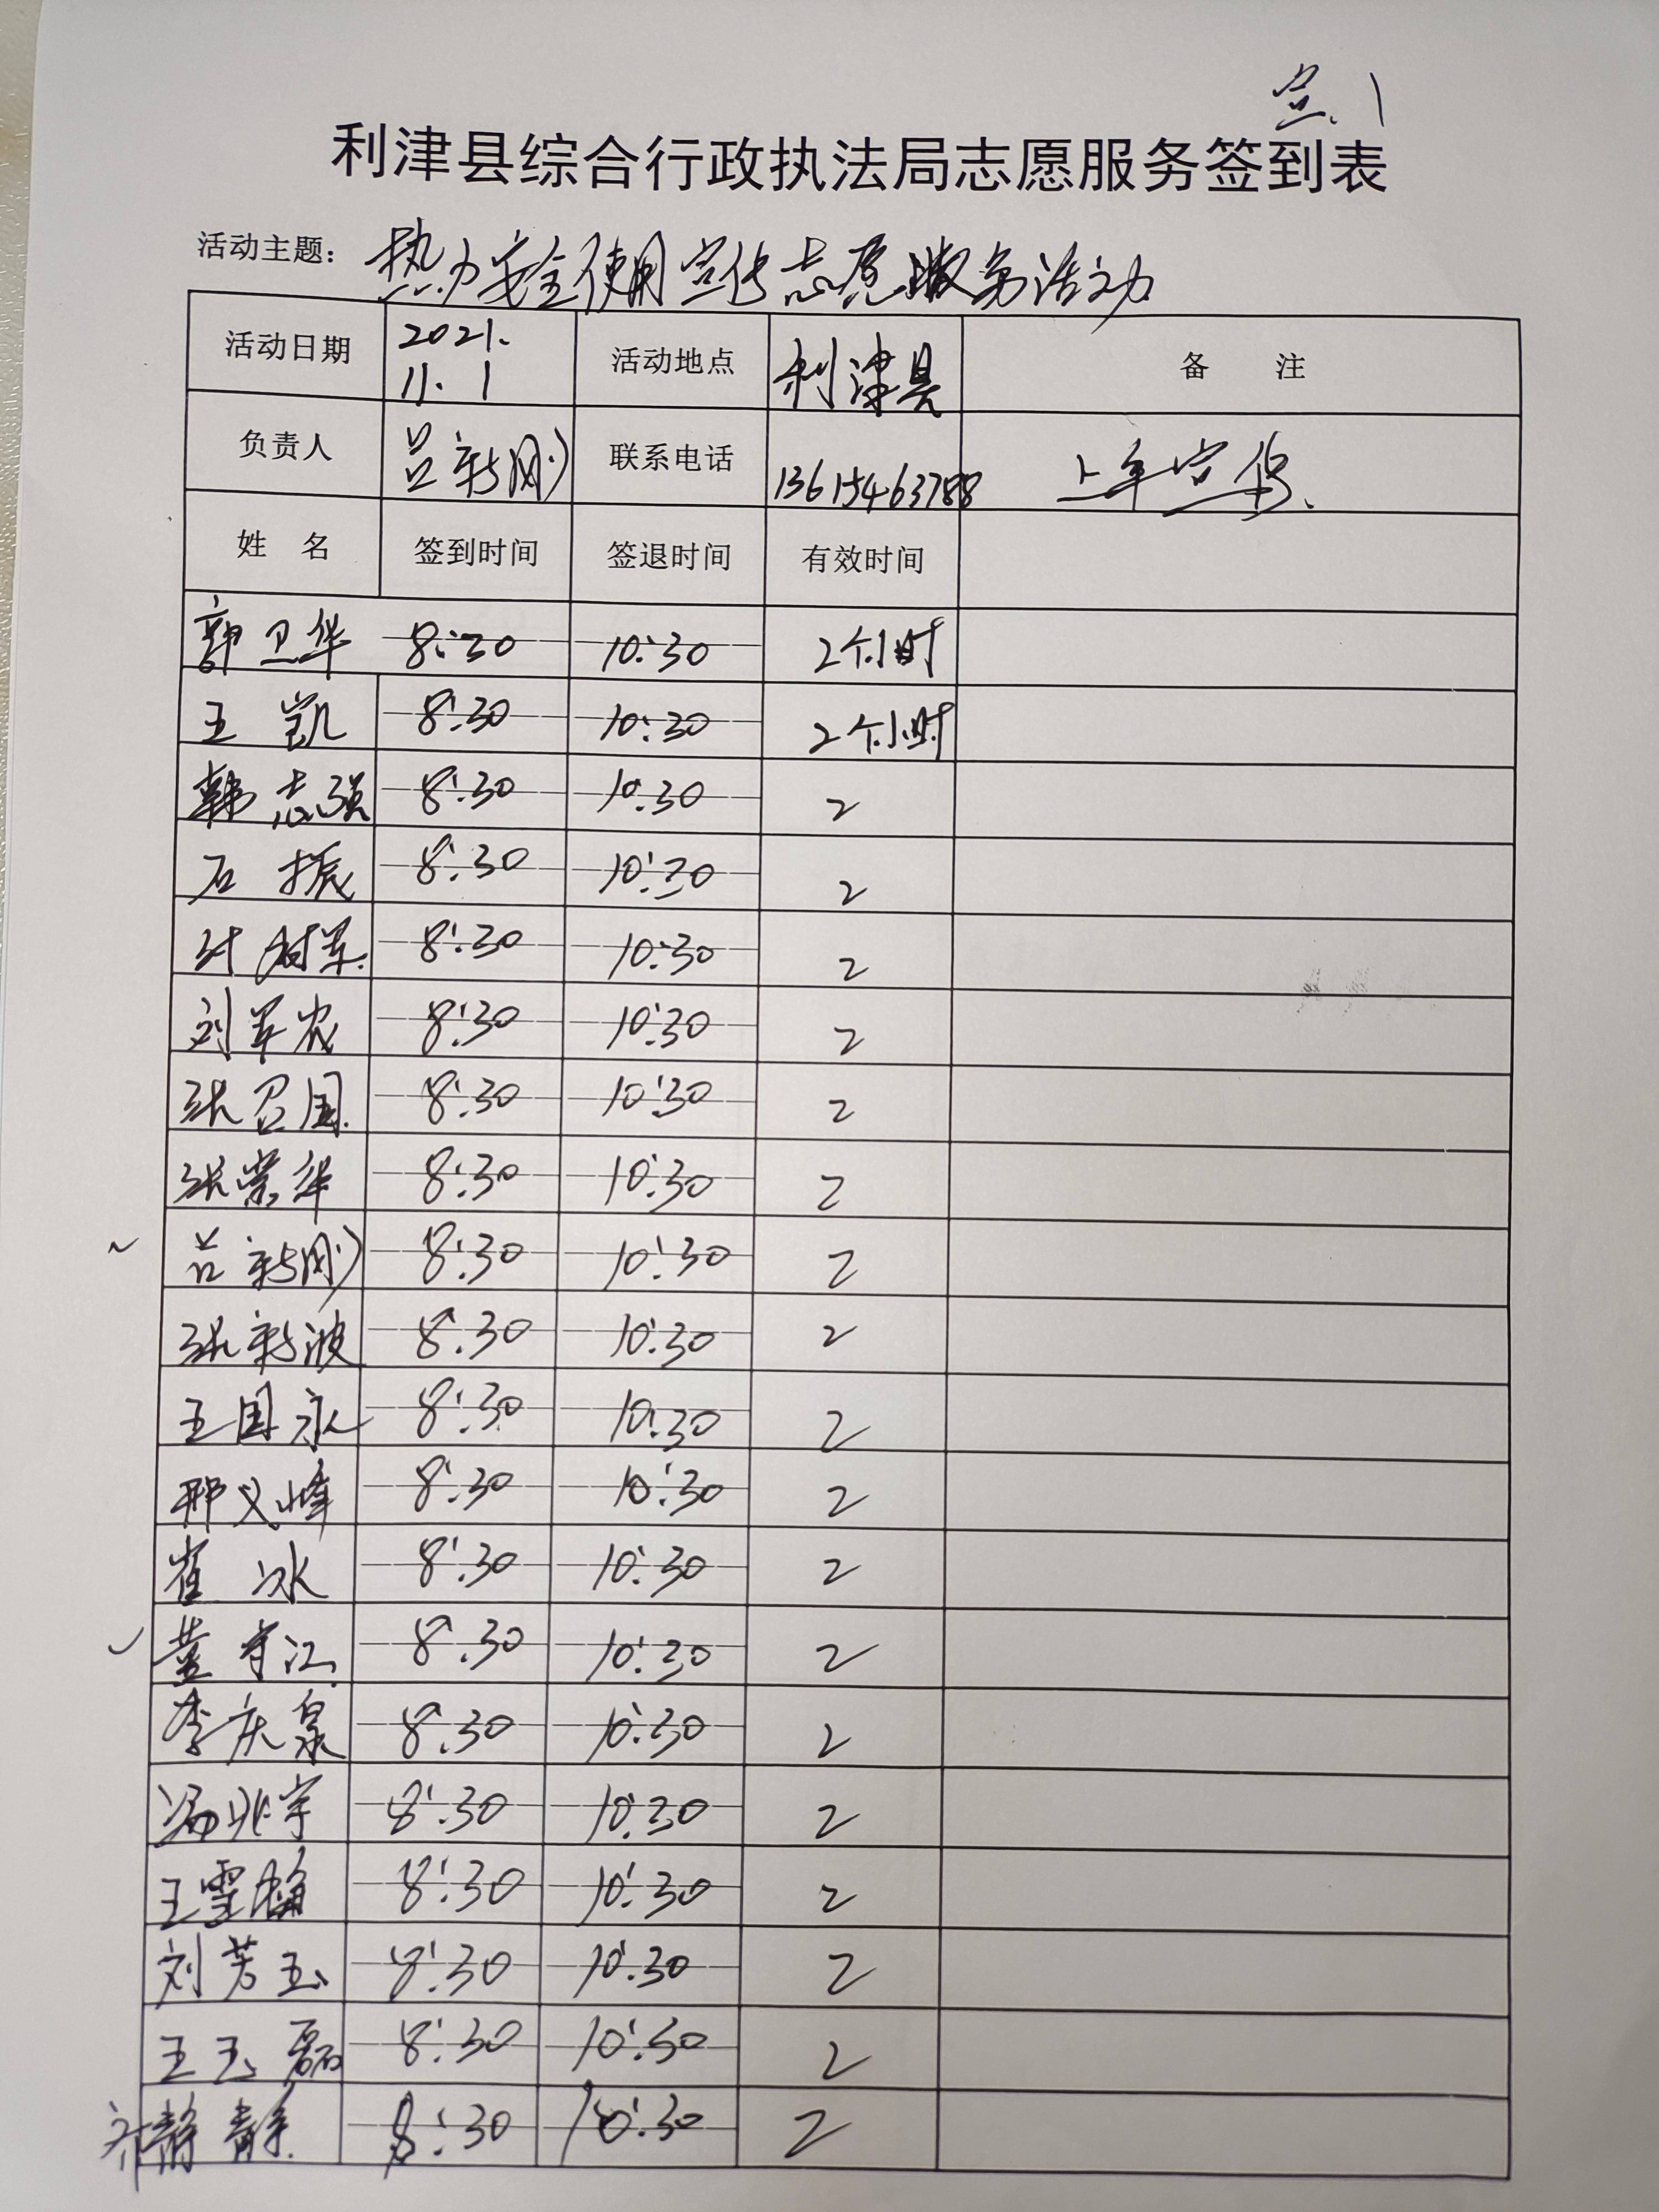 利津县综合行政执法局志愿服务签到表
活动主题： 热力安全使用宣传志愿服务活动
活动日期 2021.11.1 活动地点 利津县 备 注
负责人 吕新刚 联系电话 13615463788
姓 名 签到时间 签退时间 有效时间
郭卫华 8:30 10:30 2个小时
王 凯 8:30 10:30 2个小时
韩志强 8:30 10:30 2
石振 8:30 10:30 2
8:30 10:30 2
刘军农 8:30 10:30 2
张召国 8:30 10:30 2
张荣华 8:30 10:30 2
吕新刚 8:30 10:30 2
张新波 8:30 10:30 2
王国永 8:30 10:30 2
邢义峰 8:30 10:30 2
崔 冰 8:30 10:30 2
董守江 8:30 10:30 2
李庆泉 8:30 10:30 2
冯兆宇 8:30 10:30 2
王雪 8:30 10:30 2
刘芳玉 8:30 10:30 2
王玉磊 8:30 10:30 2
齐静静 8:30 10:30 2